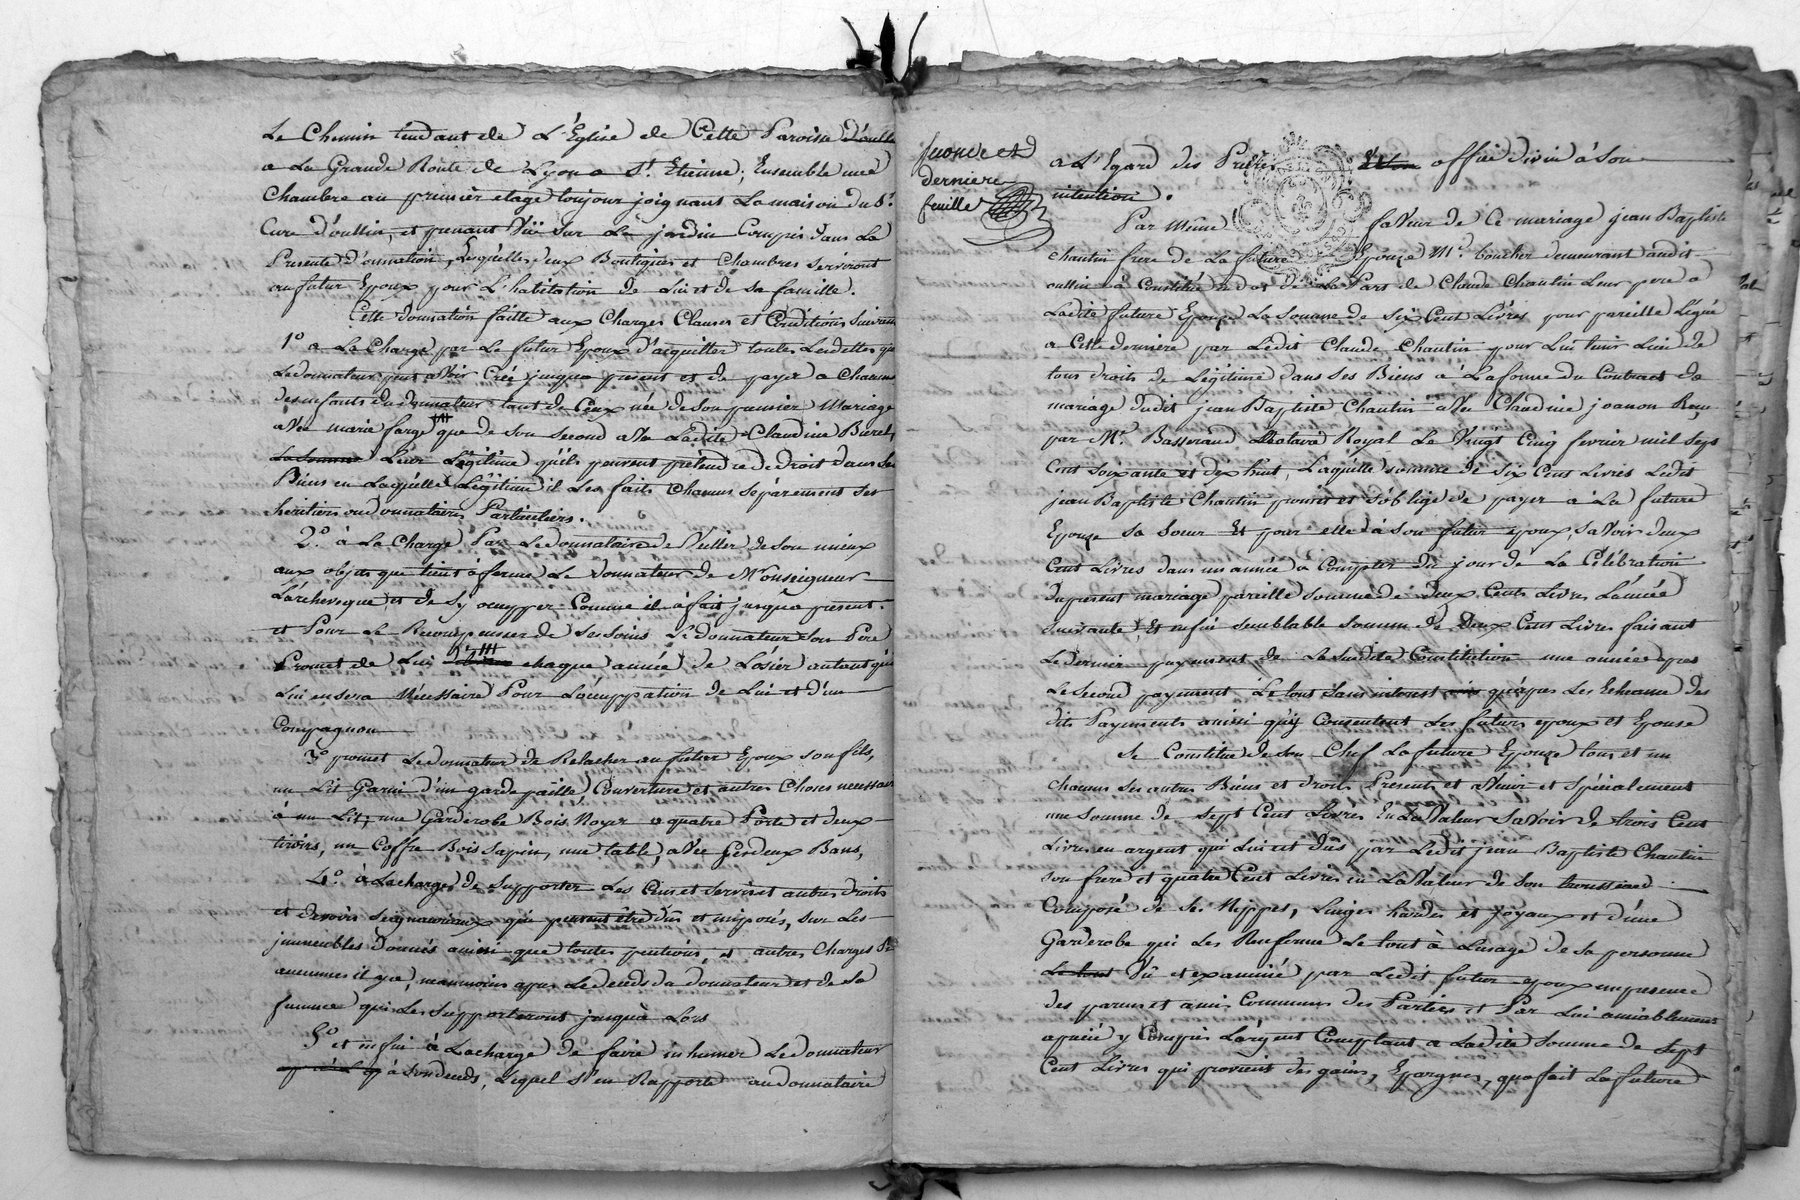 Le Chemin tendant de L'Eglise de Cette Paroisse d'oullin
a La Grande Route de Lyon a St. Etienne; Ensemble une
Chambre au premier etage toujour joignant La maison du Sr.
Curé d'oullin, et prenant Vüe sur Le jardin Compris dans La
Presente Donnation, Lesquelles deux Boutiques et Chambres serviront
au futur Epoux pour L'habitation de Lui et de sa famille.
Cette donnation faitte aux Charges Clauses et Conditions suivantes
1° a La Charge par Le futur Epoux d'acquitter toutes Les dettes que
Le donnateur peut avoir Créé jusqua present et de payer a Chacuns
des enfants du donnateur tant de Ceux née de son premier Mariage
avec marie farge que de son second avec Ladite Claudine Birel,
La somme Leur Légitime qu'ils peuvent prétendre de droit dans Ses
Biens en Laquélle Légitime il Les faits Chacuns séparément ses
héritiers ou donnataires Particuliers.
2° à La Charge Par Le donnataire de Veiller de son mieux
aux objets que tient à ferme Le donnateur de Monseigneur
L'archeveque et de s'y occupper Comme il à fait jusqu'à présent.
et Pour Le Recompenser de Ses soins Le donnateur son Pere
Promet de Lui chaque année de L'osier autant qu'il
Lui en sera Nécessaire Pour L'occuppation de Lui et d'un
Compagnon
3° promet Le donnateur de Relacher au futur Epoux son fils,
un Lit Garni d'un garde paille Couverture et autres Choses necessaires
à un Lit; une Garderobe Bois Noyer a quatre Porte et deux
tiroirs, un Coffre Bois sapin, une table, avec Ses deux Bans,
4° à La charge de supporter Les Cens et servis et autres droits
et devoirs seigneuriaux qui peuvent être dus et imposés, sur Les
immeubles Donnés ainsi que toutes pentions, et autres Charges Si
aucunnes il y a, neanmoins apres Le deceds du donnateur et de Sa
femme qui Les Supporteront jusqua Lors
5° et enfin à La charge de faire inhumer Le donnateur
à Son deceds, Lequel s'en Rapporte au donnataire
seconde et
derniere
feuille
a L'Egard des Prieres et office divin à Son
intention.
Par Même faveur de Ce mariage jean Baptiste
chantin frere de La future Epouze Md. boucher demeurant audit
oullin à Constitué en dot de La Part de Claude Chantin Leur pere a
Ladite future Epouze La Somme de Six Cent Livres pour pareille Légué
a Cette derniere par Ledit Claude Chantin pour Lui tenir Lieu de
tous droits de Légitime dans Ses Biens à La forme du Contract de
mariage dudit jean Baptiste Chantin avec Claudine joanon Reçu
par Me. Basserand Notaire Royal Le Vingt Cinq fevrier mil sept
Cent soixante et dix huit, Laquélle somme de six Cent Livres Ledit
jean Baptiste Chantin promet et s'oblige de payer a La future
Epouze sa Soeur Et pour elle à Son futur epoux, savoir deux
Cent Livres dans un année à Compter du jour de La Célébration
du present mariage pareille somme de deux Cents Livres L'année
suivante Et enfin semblable somme de Deux Cent Livres faisant
Le dernier payement de La Susdite Constitution une année apres
Le second payement, Le tout Sans interest qu'apres Les Echeance des
dits Payements ainsi qu'y Consentent Les futurs epoux et Epouse
Se Constitue de Son Chef La future Epouze tous et un
chacuns Ses autres Biens et droits Presents et avenir et spécialement
une Somme de Sept Cent Livres En La Valeur Savoir de trois Cent
Livres en argent qui Lui est dûs par Ledit jean Baptiste Chantin
son frere et quatre Cent Livres en La Valeur de Son trousseau
Composé de Ses Nippes, Linges hardes et joyaux et d'une
Garderobe qui Les Renferme Le tout à L'usage de Sa personne
Le tout Vû et examiné par Ledit futur epoux en presence
des parens et amis Communs des Parties et Par Lui amiablement
apréciè y Compris L'argent Comptant a Ladite Somme de Sept
Cent Livres qui provient des gains, Epargnes, qu'a fait La future